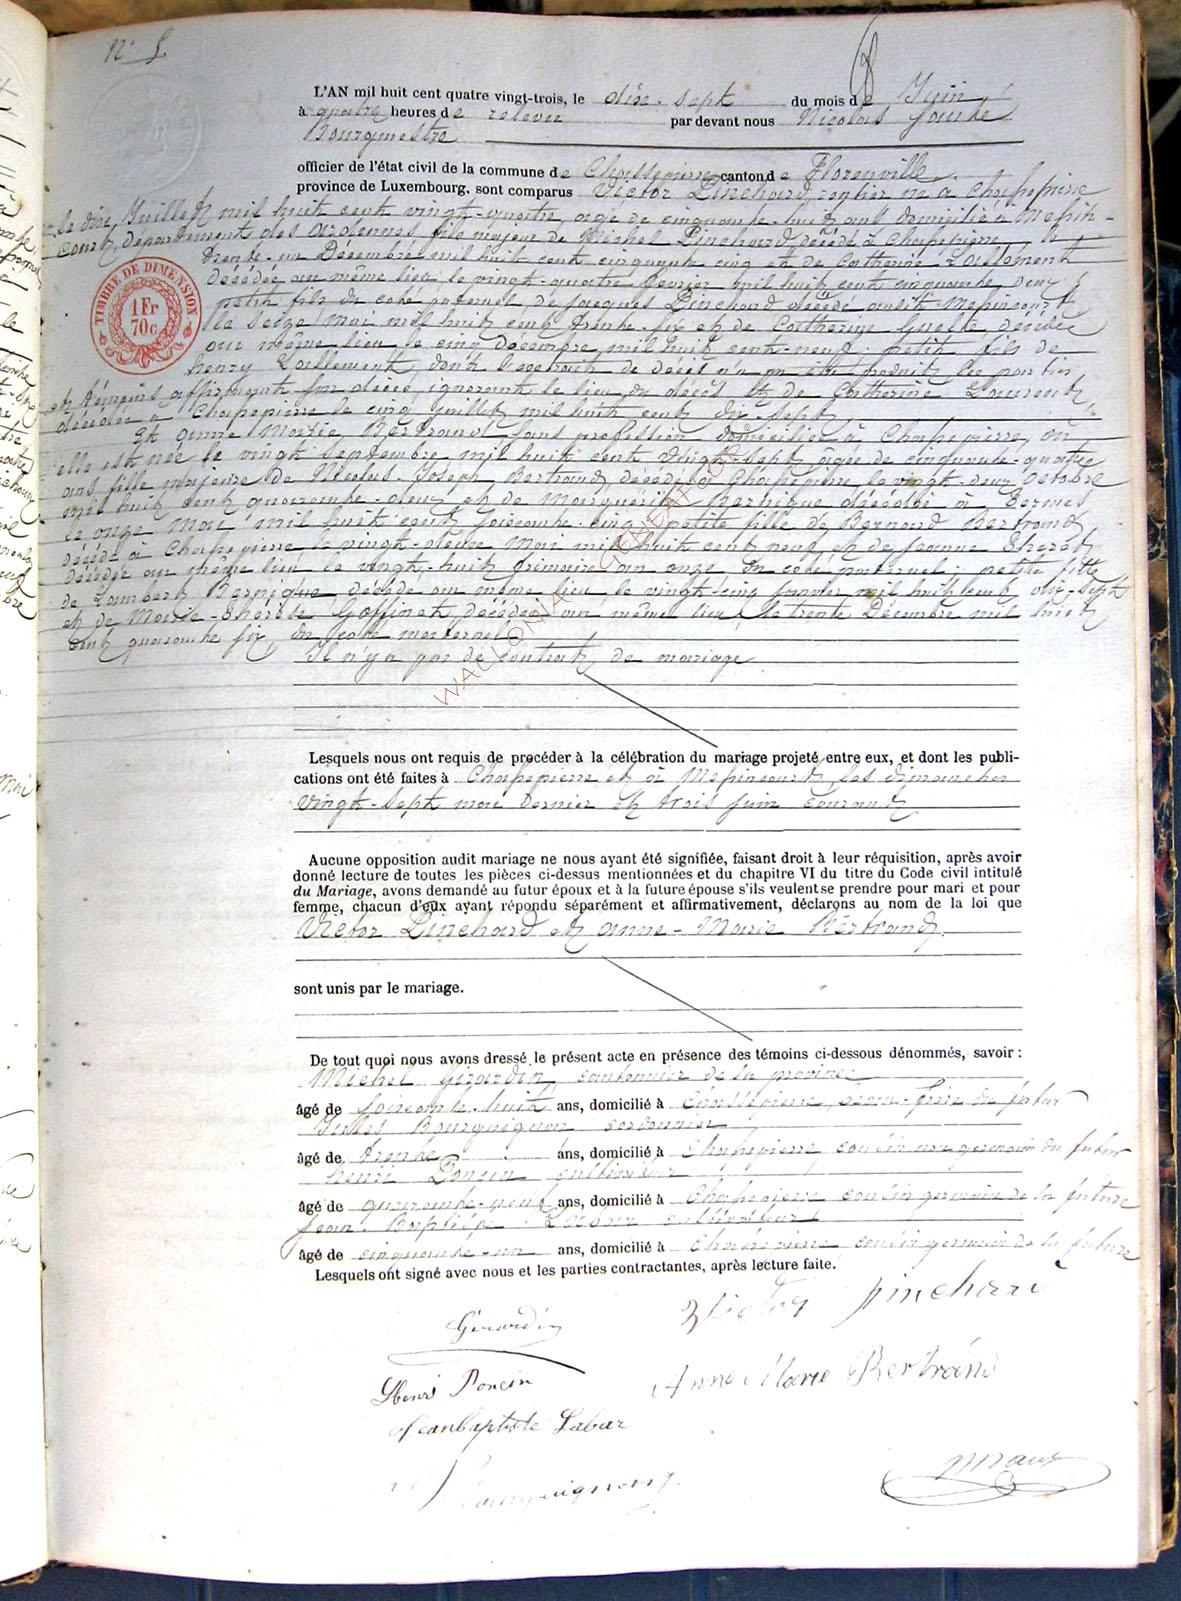 N° 5
8
L'AN mil huit cent quatre vingt-trois, le dix-sept du mois de Juin
à quatre heures de relevée par devant nous Nicolas
Bourgmestre
officier de l'état civil de la commune de Chassepierre canton de Florenville
province de Luxembourg, sont comparus Victor Pinchard rentier né à Chassepierre
le dix Juillet mil huit cent vingt-quatre, âgé de cinquante-huit ans domicilié à Messin-
court, département des Ardennes fils majeur de Michel Pinchard, décédé à Chassepierre le
trente-un Décembre mil huit cent cinquante cinq et de Catherine Laillement
décédée au même lieu le vingt-quatre février mil huit cent cinquante deux
petit fils du coté paternel de Jacques Pinchard décédé audit Messincourt
le seize Mai mil huit cent trente-six et de Catherine Gueste, décédée
au même lieu le cinq décembre mil huit cent-neuf, petit fils de
henry Laillement, dont l'extrait de décès n'a pu être produit les parties
et témoins affirmant son décès, ignorant le lieu du décès et de Catherine Laurent
décédée à Chassepierre le cinq juillet mil huit cent dix sept
Et Anne Marie Bertrand sans profession domiciliée à Chassepierre, où
elle est née le vingt septembre mil huit cent vingt-sept âgée de cinquante-quatre
ans, fille majeure de Nicolas-Joseph Bertrand, décédé à Chassepierre le vingt-deux octobre
mil huit cent quarante-deux et de Marguerite Bernique décédée à Termes
le onze Mai mil huit cent soixante-cinq, petite fille de Bernard Bertrand
décédé à Chassepierre le vingt-deux Mai mil huit cent neuf et de Jeanne
décédée au même lieu le vingt-huit frimaire an onze du coté paternel; petite fille
de Lambert Bernique décédé au même lieu le vingt-cinq janvier mil huit cent dix-sept
et de Marie-Thérèse Goffinet décédée au même lieu, le trente Décembre mil huit
cent quarante six, du coté maternel
Il n'y a pas de contrat de mariage
TIMBRE DE DIMENSION
1 Fr
70 c.
WALLONIA GENEATOR
Lesquels nous ont requis de procéder à la célébration du mariage projeté entre eux, et dont les publi-
cations ont été faites à Chassepierre et à Messincourt les dimanches
vingt-sept mai dernier et trois juin courant
Aucune opposition audit mariage ne nous ayant été signifiée, faisant droit à leur réquisition, après avoir
donné lecture de toutes les pièces ci-dessus mentionnées et du chapitre VI du titre du Code civil intitulé
du Mariage, avons demandé au futur époux et à la future épouse s'ils veulent se prendre pour mari et pour
femme, chacun d'eux ayant répondu séparément et affirmativement, déclarons au nom de la loi que
Victor Pinchard et Anne-Marie Bertrand
sont unis par le mariage.
De tout quoi nous avons dressé le présent acte en présence des témoins ci-dessous dénommés, savoir :
Michel Girardin, cantonnier de la province
âgé de soixante-huit ans, domicilié à Chassepierre, beau-frère du futur
Jules Bourguignon cordonnier
âgé de trente ans, domicilié à Chassepierre cousin germain du futur
henri Poncin cultivateur
âgé de quarante-neuf ans, domicilié à Chassepierre cousin germain de la future
Jean Baptiste Labar cultivateur
âgé de cinquante-un ans, domicilié à Chassepierre cousin germain de la future
Lesquels ont signé avec nous et les parties contractantes, après lecture faite.
Victor pinchard
Girardin
Anne Marie Bertrand
Henri Poncin
Jean baptiste Labar
Bourguignon j.